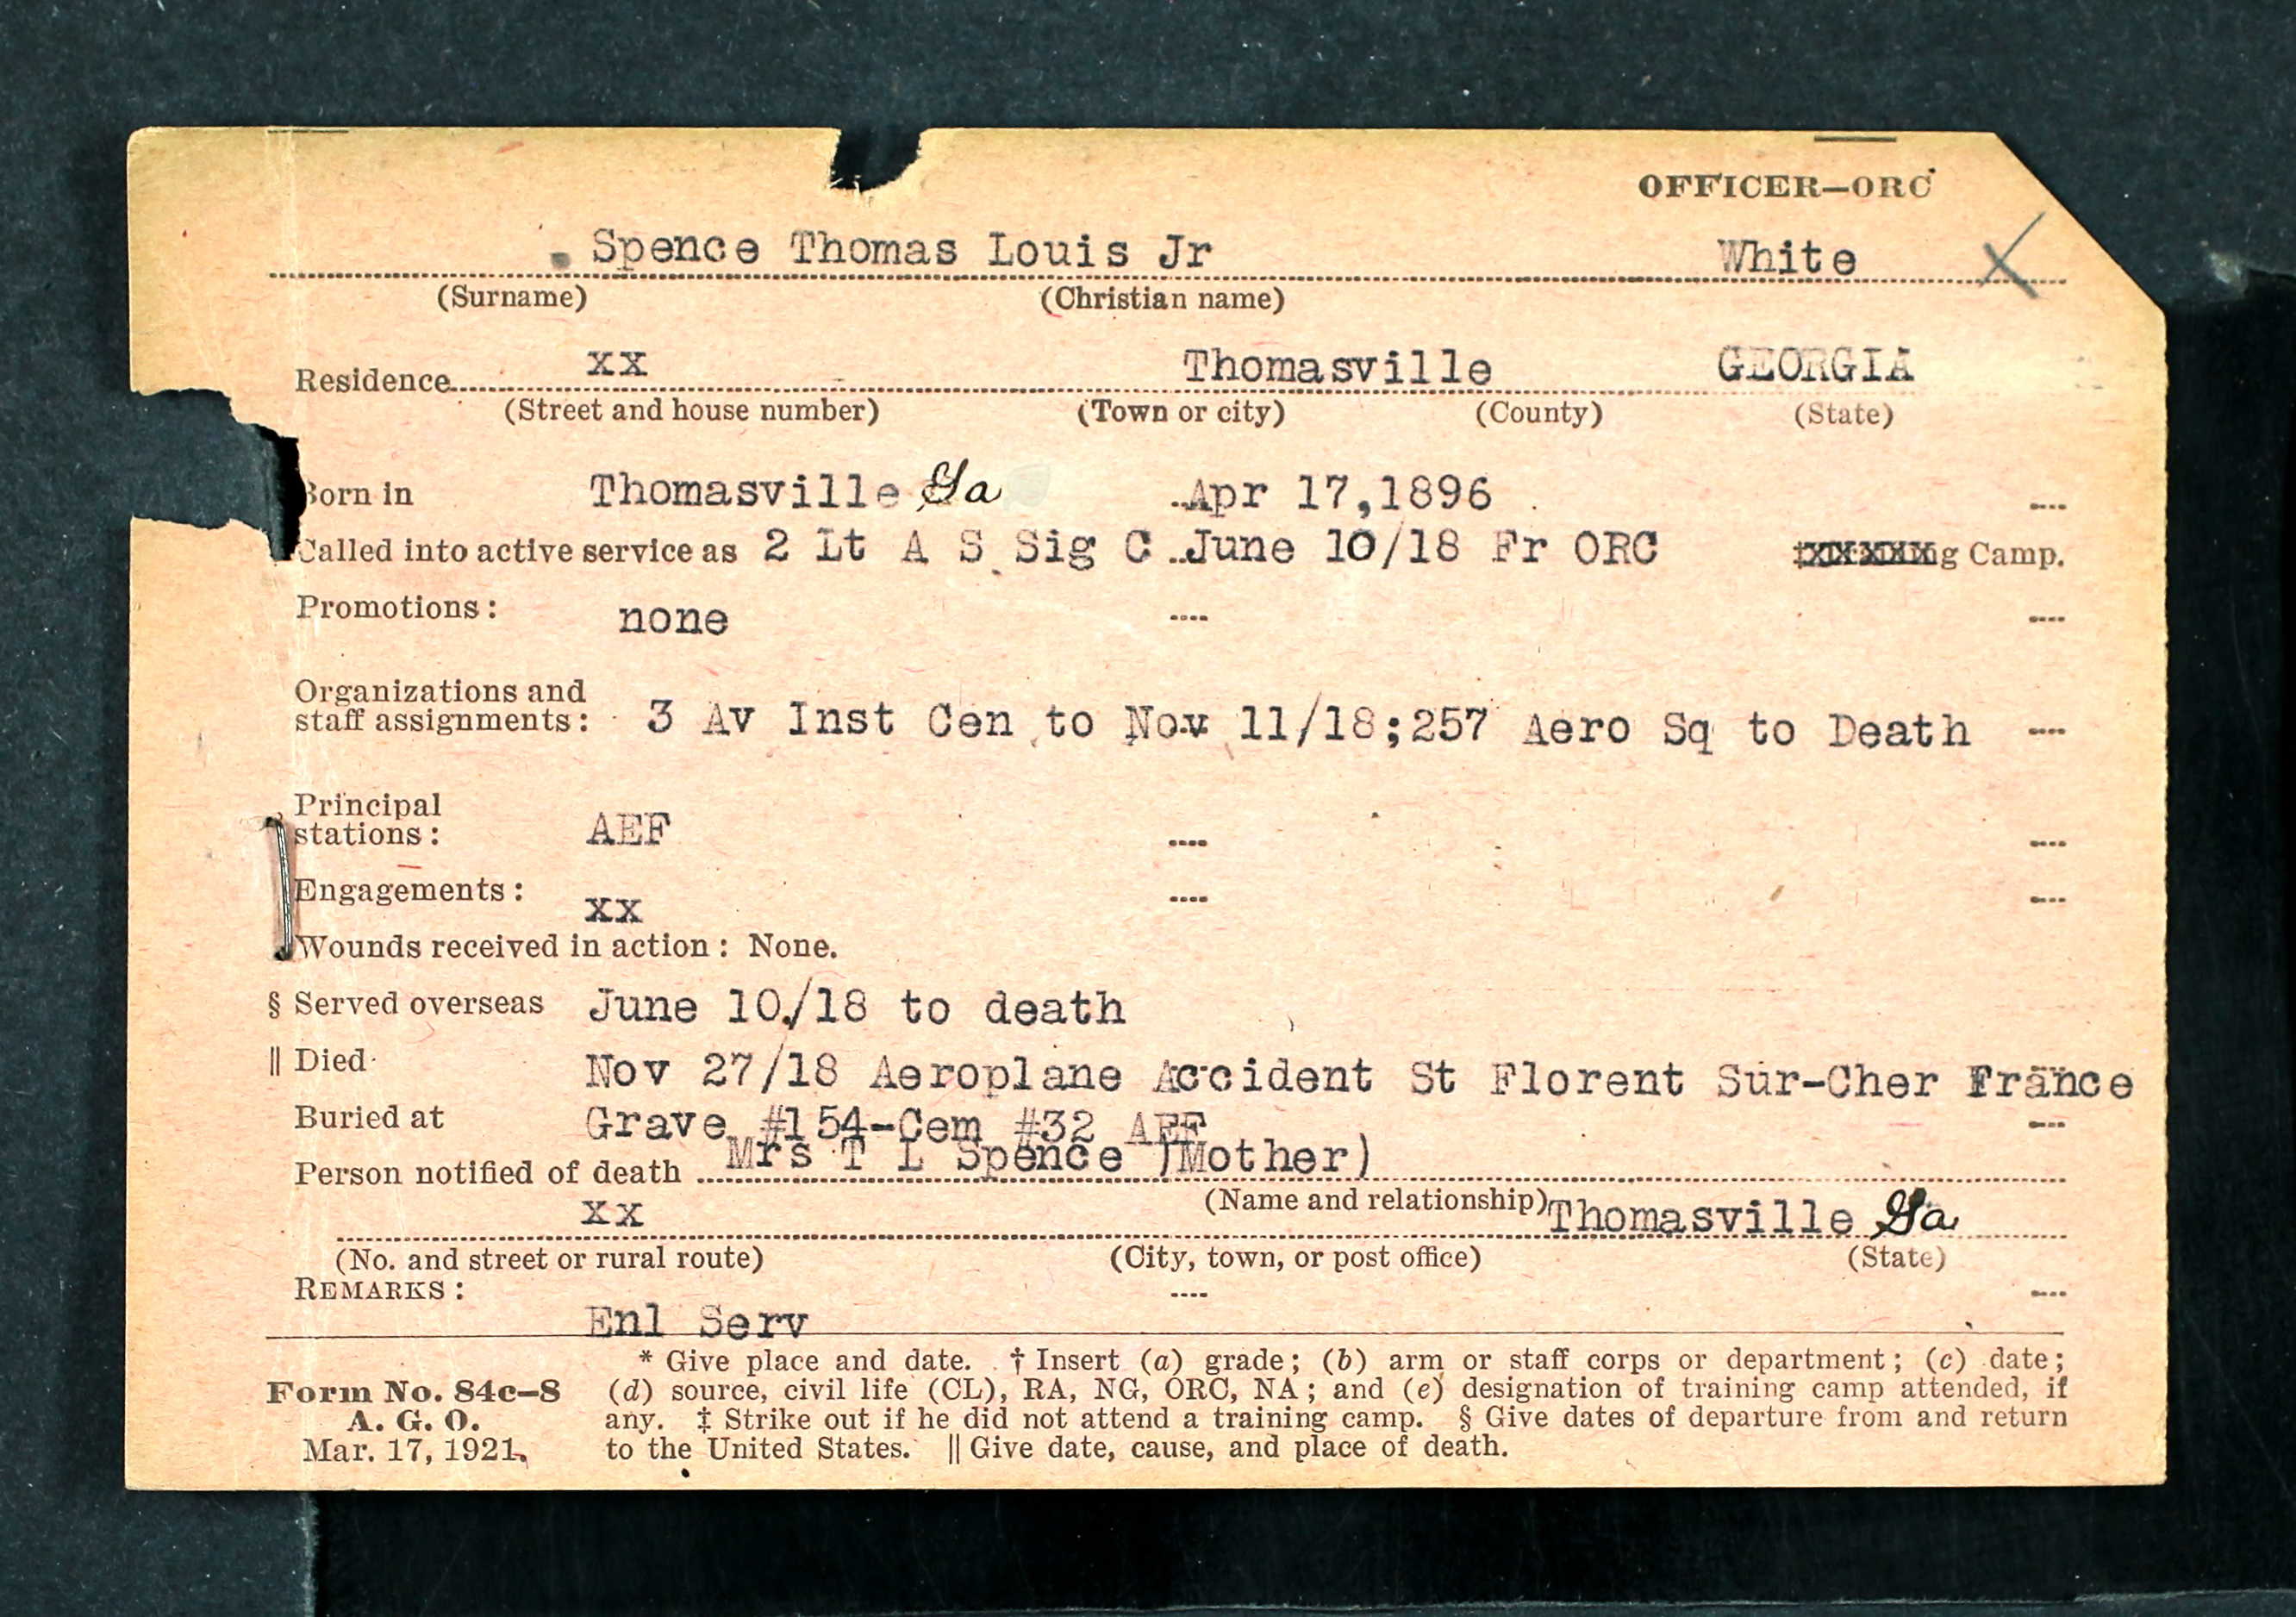 OFFICER—ORC
Spence Thomas Louis Jr White X
(Surname) (Christian name)
Residence xx Thomasville GEORGIA
(Street and house number) (Town or city) (County) (State)
Born in Thomasville Ga Apr 17,1896
Called into active service as 2 Lt A S Sig C June 10/18 Fr ORC xxxxxxg Camp.
Promotions: none
Organizations and
staff assignments: 3 Av Inst Cen to Nov 11/18;257 Aero Sq to Death
Principal
stations: AEF
Engagements: xx
Wounds received in action: None.
§ Served overseas June 10/18 to death
|| Died Nov 27/18 Aeroplane Accident St Florent Sur-Cher France
Buried at Grave #154-Cem #32 AEF
Person notified of death Mrs T L Spence (Mother)
(Name and relationship)
xx Thomasville Ga
(No. and street or rural route) (City, town, or post office) (State)
REMARKS:
Enl Serv
* Give place and date. † Insert (a) grade; (b) arm or staff corps or department; (c) date;
Form No. 84c–8 (d) source, civil life (CL), RA, NG, ORC, NA; and (e) designation of training camp attended, if
A. G. O. any. ‡ Strike out if he did not attend a training camp. § Give dates of departure from and return
Mar. 17, 1921. to the United States. || Give date, cause, and place of death.